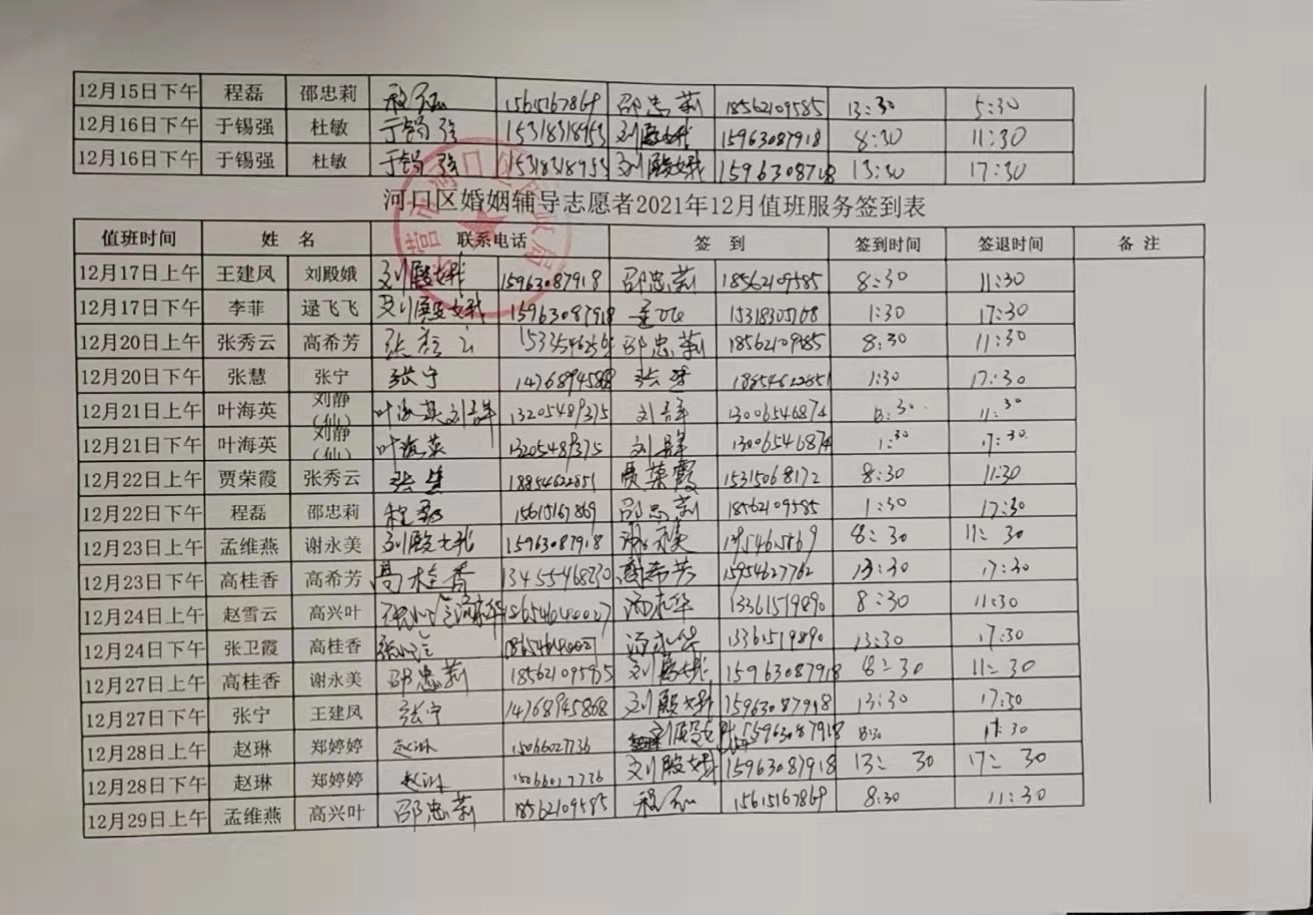 12月15日下午 程磊 邵忠莉 程磊 15615167869 邵忠莉 18562109585 13:30 5:30
12月16日下午 于锡强 杜敏 于锡强 15318318953 刘殿娥 15963087918 8:30 11:30
12月16日下午 于锡强 杜敏 于锡强 15318318953 刘殿娥 1596308 13:30 17:30
河口区婚姻辅导志愿者2021年12月值班服务签到表
值班时间 姓 名 联系电话 签 到 签到时间 签退时间 备 注
12月17日上午 王建凤 刘殿娥 刘殿娥 15963087918 邵忠莉 18562109585 8:30 11:30
12月17日下午 李菲 逯飞飞 刘殿娥 15963087918 1:30 17:30
12月20日上午 张秀云 高希芳 张秀云 邵忠莉 18562109585 8:30 11:30
12月20日下午 张慧 张宁 张宁 张慧 18854622851 1:30 17:30
12月21日上午 叶海英 刘静(仙) 叶海英 刘静 13205489375 刘静 11:30
12月21日下午 叶海英 刘静(仙) 叶海英 13205489375 刘静 1:30 17:30
12月22日上午 贾荣霞 张秀云 张慧 18854622851 贾荣霞 15315068172 8:30 11:30
12月22日下午 程磊 邵忠莉 程磊 15615167869 邵忠莉 18562109585 1:30 17:30
12月23日上午 孟维燕 谢永美 刘殿娥 15963087918 谢永美 8:30 11:30
12月23日下午 高桂香 高希芳 高桂香 13455468230 高希芳 15954627762 13:30 17:30
12月24日上午 赵雪云 高兴叶 汤永华 13361519890 8:30 11:30
12月24日下午 张卫霞 高桂香 汤永华 13361519890 13:30 17:30
12月27日上午 高桂香 谢永美 邵忠莉 刘殿娥 15963087918 8:30 11:30
12月27日下午 张宁 王建凤 张宁 14768945868 刘殿娥 15963087918 13:30 17:30
12月28日上午 赵琳 郑婷婷 赵琳 15066027736 刘殿娥 15963087918 8:30 11:30
12月28日下午 赵琳 郑婷婷 赵琳 15066027736 刘殿娥 15963087918 13:30 17:30
12月29日上午 孟维燕 高兴叶 邵忠莉 18562109585 程磊 15615167869 8:30 11:30